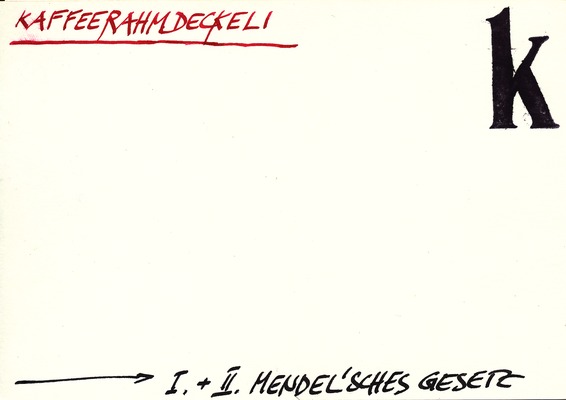 KAFFEERAHMDECKELI
k
I. + II. MENDEL'SCHES GESETZ